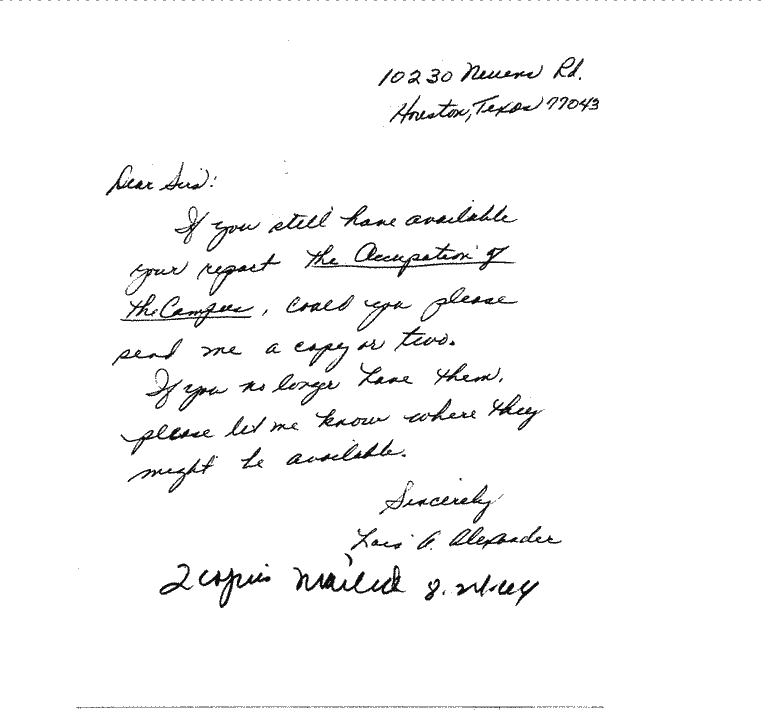 10230 Neuens Rd.
Houston, Texas 77043
Dear Sirs:
If you still have available
your report The Occupation of
the Campus, could you please
send me a copy or two.
If you no longer have them,
please let me know where they
might be available.
Sincerely
Lois A. Alexander
2 copies mailed 8.